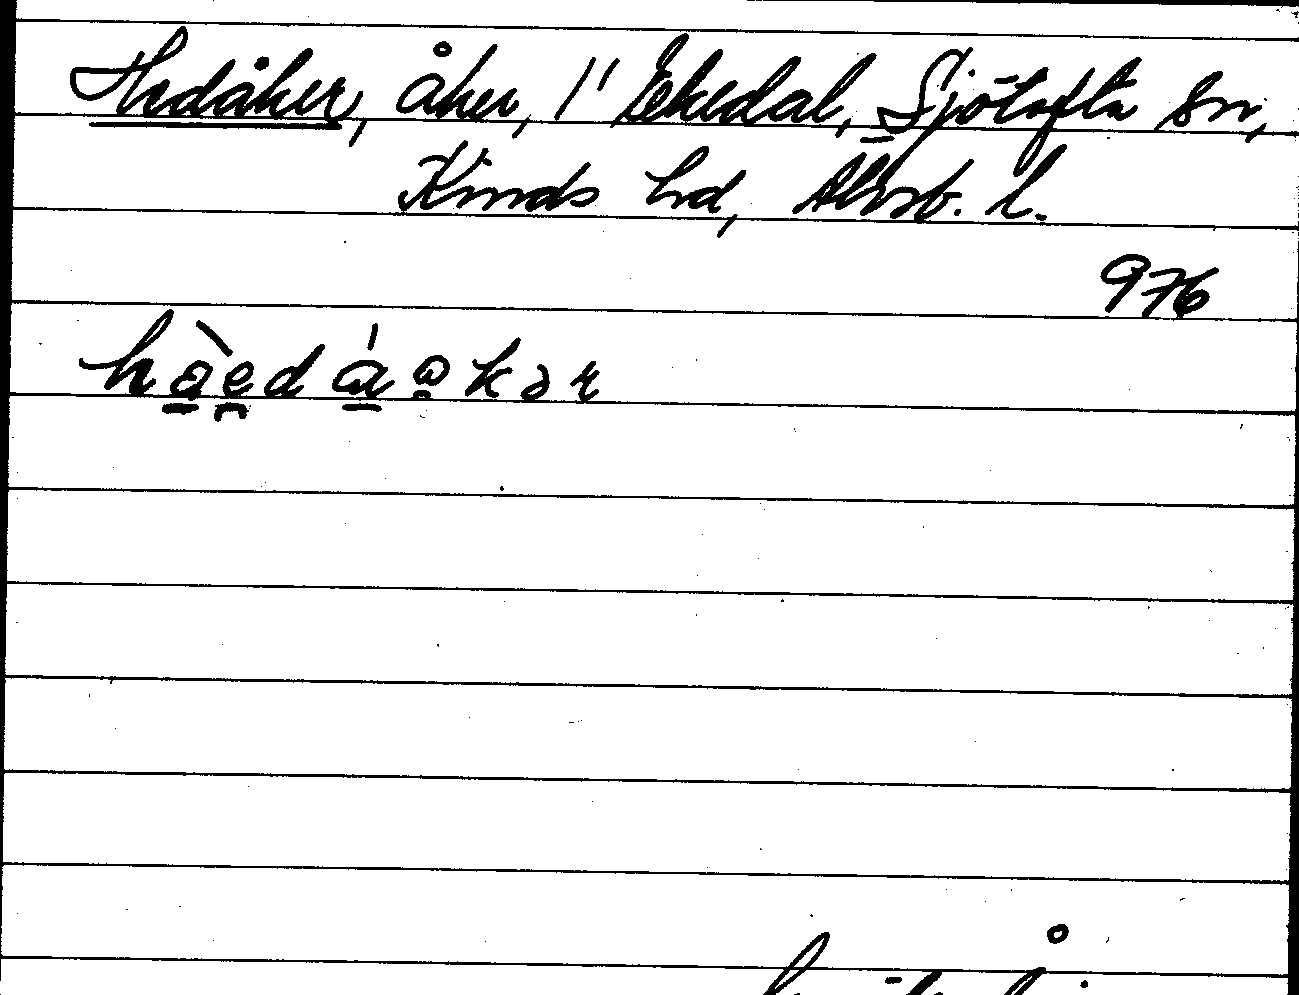 Hedåker, åker, 1" Ekedal, Sjötofta sn,
Kinds hd, Älvsb. l.
976
hàedáåkər